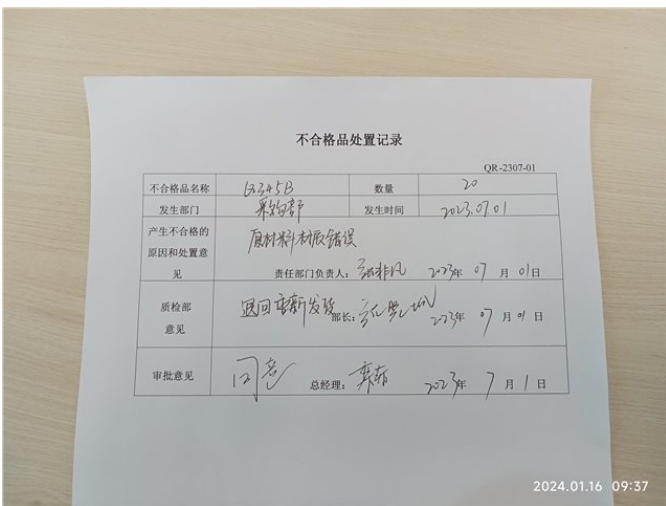 不合格品处置记录
QR-2307-01
不合格品名称 Q345B 数量 20
发生部门 采购部 发生时间 2023.07.01
产生不合格的
原因和处置意
见
原材料材质错误
责任部门负责人： 非凡 2023年 07 月 01日
质检部
意见
退回重新发货
部长： 2023年 07 月 01 日
审批意见 同意 总经理： 2023年 7 月 1 日
2024.01.16 09:37